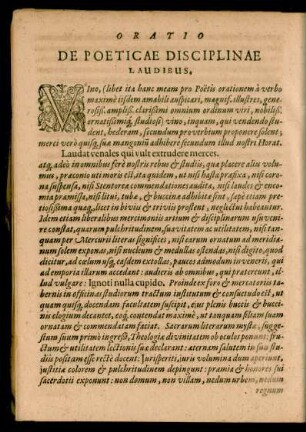 ORATIO
DE POETICAE DISCIPLINAE
LAUDIBUS.
VIno, (libet ita hanc meam pro Poëtis orationem à verbo
maximè iisdem amabili auspicari, magnif. illustres, gene-
rosiss. ampliss. clarissimi omnium ordinum viri, nobiliss.
ornatissimiq́; studiosi) vino, inquam, qui vendendo stu-
dent, hederam, secundum proverbium proponere solent;
merci verò quisq; suæ mangonium adhibere secundum illud nostri Horat.
Laudat venales qui vult extrudere merces.
atq; adeò in omnibus ferè nostris rebus & studiis, quæ placere aliis volu-
mus, præconio uti moris est, ita quidem, ut nisi hasta præfixa, nisi coro-
na suspensa, nisi Stentorea commendatione audita, nisi laudes & enco-
mia præmissa, nisi litui, tubæ, & buccina adhibitæ sint, species etiam pre-
tiosissima quæq; licet in bivio & triviis prostent, neglectui habeantur.
Idem etiam liberalibus mercimoniis artium & disciplinarum usu veni-
re constat, quarum pulchritudinem, suavitatem ac utilitatem, nisi tan-
quam per Mercurii literas significes, nisi earum ornatum ad meridia-
num solem exponas, nisi nucleum & medullas ostendas, nisi digito, quod
dicitur, ad cœlum usq; easdem extollas, paucos admodum inveneris, qui
ad emporia illarum accedant: audieris ab omnibus, qui prætereunt, il-
lud vulgare: Ignoti nulla cupido. Proinde ex foro & mercatoriis ta-
bernis in officias studiorum tractum institutum & consuetudo est, ut
quam quisq; docendam facultatem suscipit, ejus pleniss buccis & bucci-
nis elogium decantet, eoq; contendat maximè, ut tanquam filiam suam
ornatam & commendatam faciat. Sacrarum literarum mysta, sugge-
stum suum primò ingressi, Theologiæ divinitatem ob oculos ponunt; fru-
ctum & utilitatem lectionis suæ declarant: æternam salutem in suis stu-
diis positam esse rectè docent: Jurisperiti, juris volumina dum aperiunt,
justitiæ colorem & pulchritudinem depingunt: præmia & honores sui
sacerdotii exponunt: non domum, non villam, nedum urbem, nedum
regnum